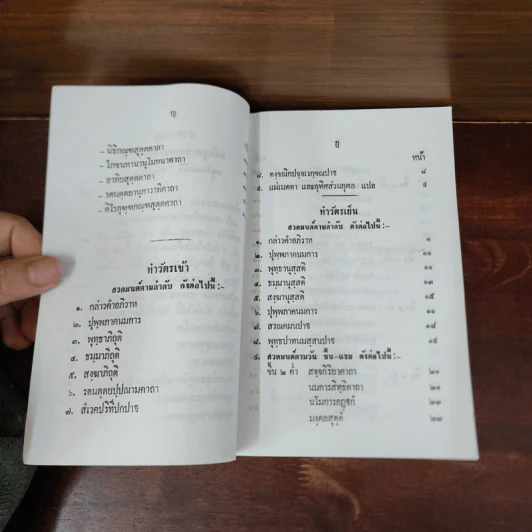 ญ
– นิธิกณฺฑสุตฺตคาถา
– โภชนทานานุโมทนาคาถา
– อาทิยสุตฺตคาถา
– รตนตฺตยานุภาวาทิคาถา
– ติโรกุฑฺฑกณฺฑสุตฺตคาถา
ทำวัตรเช้า
สวดมนต์ตามลำดับ ดังต่อไปนี้ :-
๑. กล่าวคำอภิวาท
๒. ปุพฺพภาคนมการ
๓. พุทฺธาภิถุติ
๔. ธมฺมาภิถุติ
๕. สงฺฆาภิถุติ
๖. รตนตฺตยปฺปณามคาถา
๗. สํเวคปริกิตฺตนปาฐ
หน้า
๘. ตงฺขณิกปจฺจเวกฺขณปาฐ ๘
๙. แผ่เมตตา และอุทิศส่วนกุศล แปล ๙
ทำวัตรเย็น
สวดมนต์ตามลำดับ ดังต่อไปนี้ :-
๑. กล่าวคำอภิวาท ๑
๒. ปุพฺพภาคนมการ
๓. พุทฺธานุสฺสติ
๔. ธมฺมานุสฺสติ
๕. สงฺฆานุสฺสติ ๑๕
๖. ปุพฺพภาคนมการ
๗. สรณคมนปาฐ ๑๘
๘. พุทฺธ
๙. สวดมนต์ตามวัน ขึ้น-แรม ดังต่อไปนี้ :-
ขึ้น ๒ ค่ำ สจฺจกิริยาคาถา ๒๑
นมการสิทฺธิคาถา ๒๑
นโมการอฏฺฐกํ ๒๓
มงฺคลสุตฺตํ ๒๓